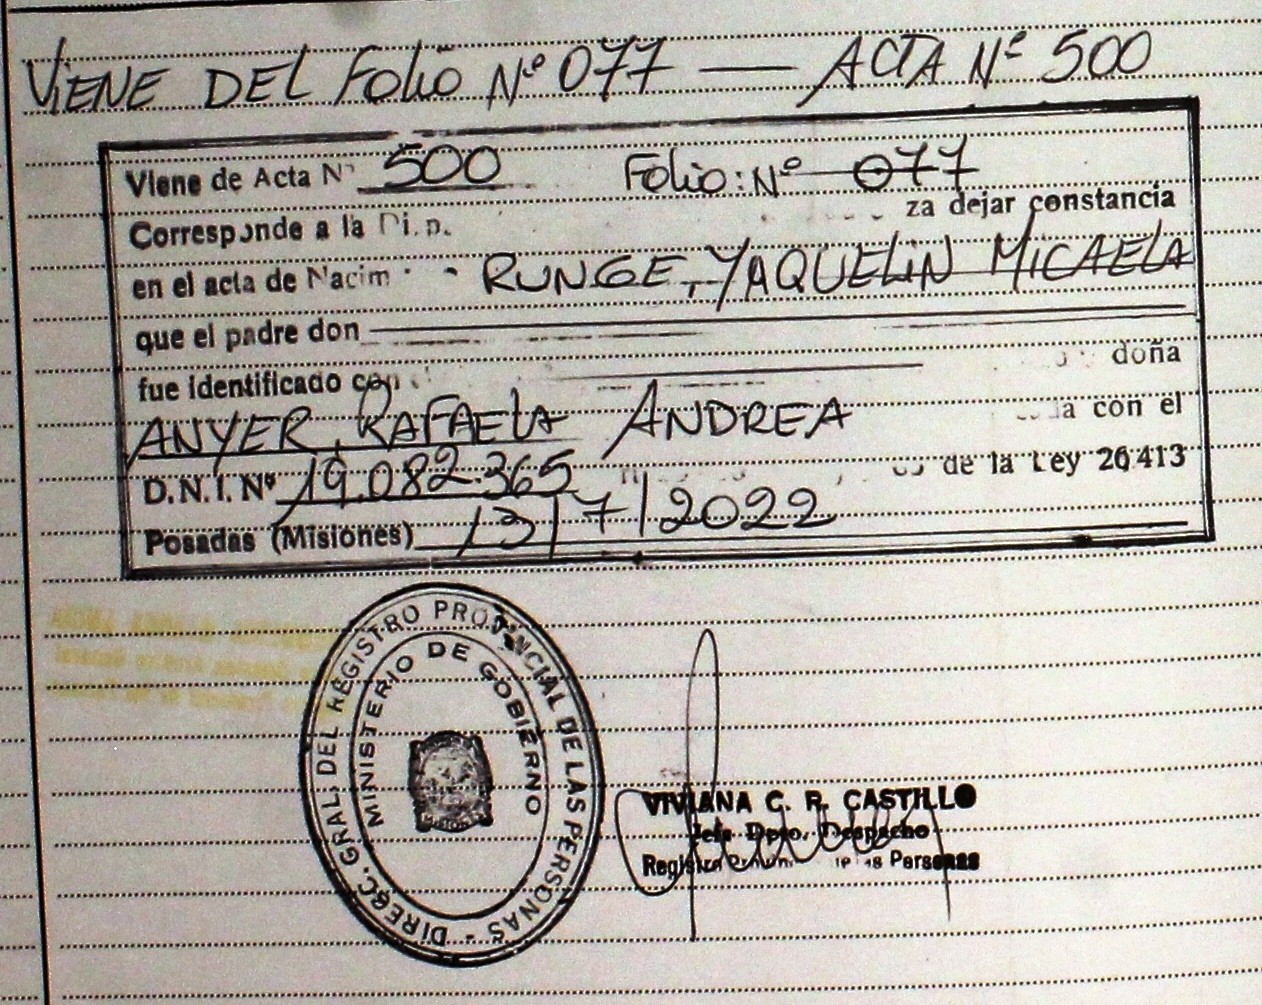 VIENE DEL FOLIO Nº 077 — ACTA Nº 500
Viene de Acta Nº 500 Folio: Nº 077
Corresponde a la Di.p. za dejar constancia
en el acta de Nacim RUNGE, YAQUELIN MICAELA
que el padre don
fue identificado con doña
ANYER, RAFAELA ANDREA a con el
D.N.I. Nº 19.082.365 de la Ley 26413
Posadas (Misiones) 13/7/2022
DIRECC. GRAL. DEL REGISTRO PROVINCIAL DE LAS PERSONAS -
MINISTERIO DE GOBIERNO
VIVIANA C. R. CASTILLO
Jefa Dpto. Despacho
Registro Personas